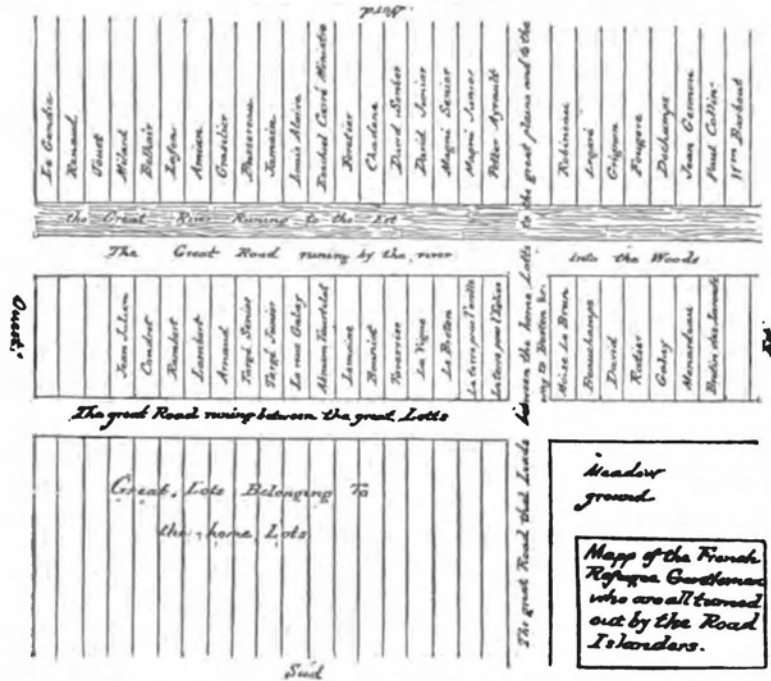 Nord
Le Gendre
Renaud
Jouet
Milard
Belhair
Lafon
Amian
Grasilier
Bussereau
Jamain
Louis Alaire
Ezechiel Carré Ministre
Foretier
Chadene
David Senior
David Junior
Magni Senior
Magni Junior
Petter Ayrault
Robineau
Legaré
Grignon
Fougere
Dechamps
Jean Germon
Paul Collin
Wm Barbout
the Great River Runing to the Est
The Great Road runing by the river
into the Woods
Ouest
Est
Jean Julien
Coudret
Rambert
Lambert
Arnaud
Targé Senior
Targé Junior
La veue Galay
Abram Tourtelot
Lemoine
Bouniot
Tavarrier
La Vigne
Le Breton
La terre pour l'ecolle
La terre pour l'Eglise
Moise Le Brun
Beauchamps
David
Ratier
Galay
Menardeau
Bretin des Jarnade
The great Road runing between the great Lotts
The great Road that Leads between the home Lotts to the great plains and to the
way to Boston &c.
Great Lots Belonging To
the home Lots
Meadow
ground
Mapp of the French
Refugee Gentlemen
who are all turned
out by the Road
Islanders.
Süd